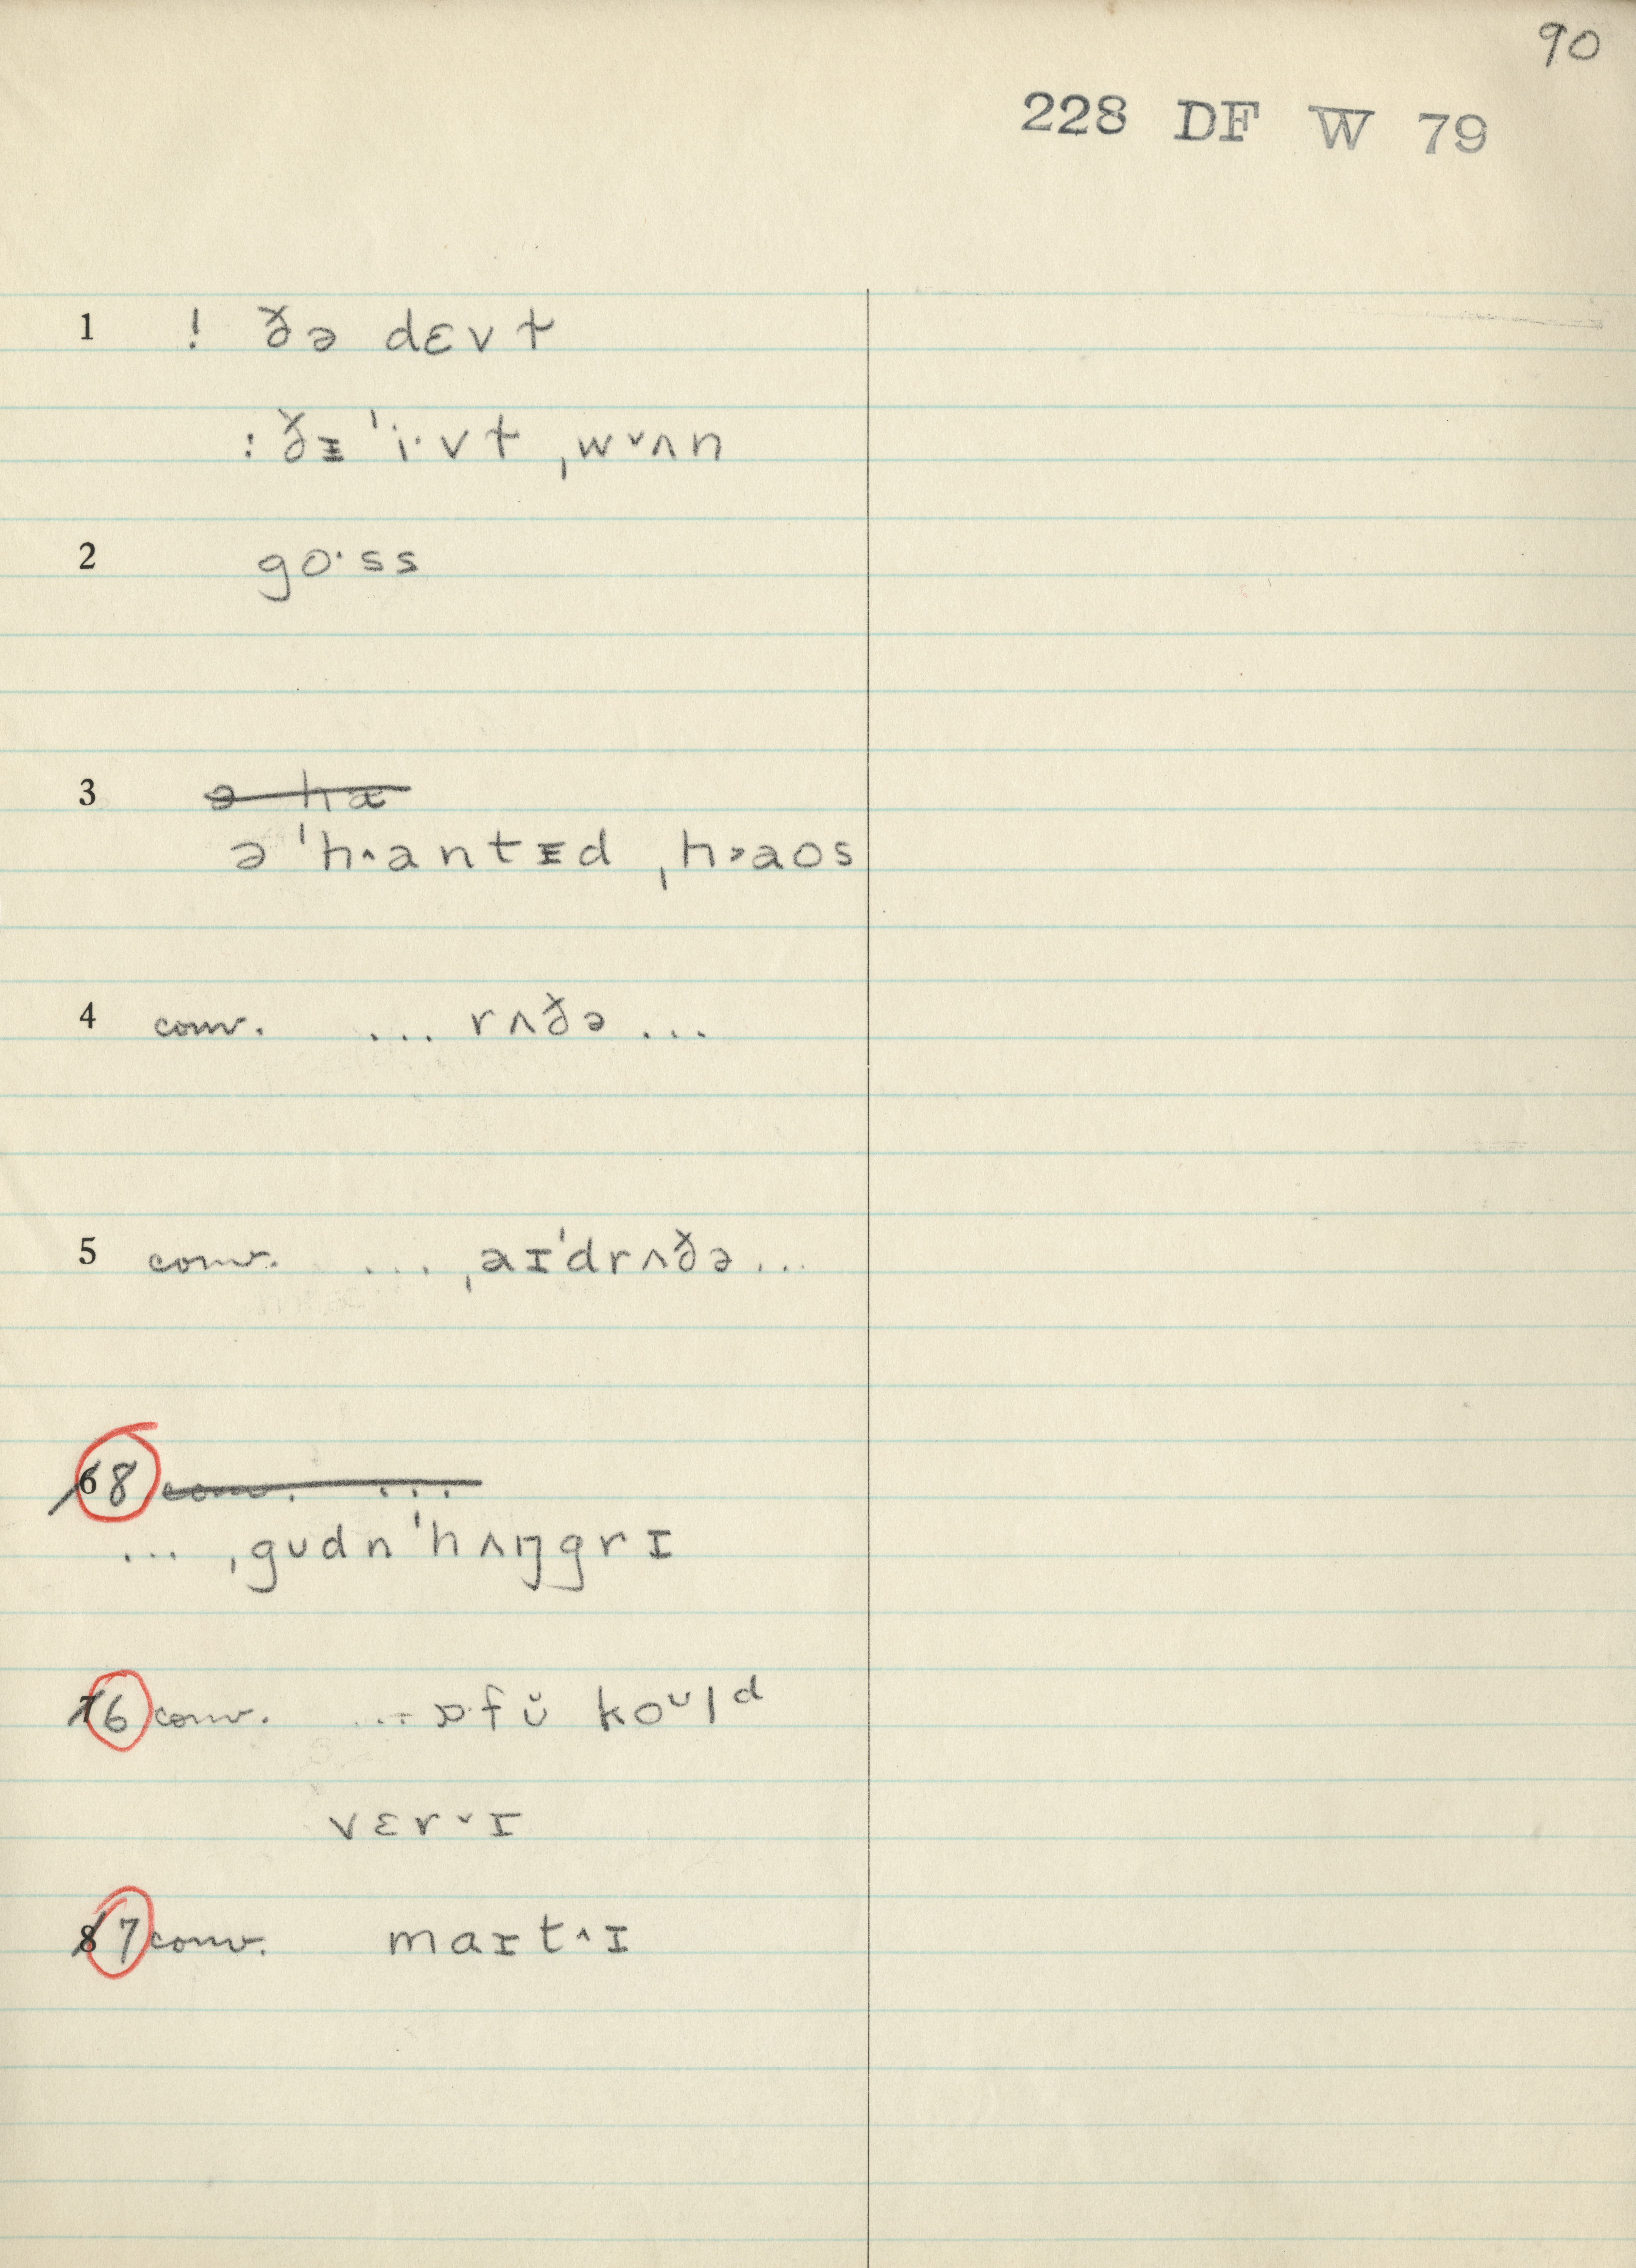 90
228 DF W 79
1 ! ðə dɛvɫ
: ðᵻ ˈi·vɫ ˌwᵛʌn
2 go·ss
3 ə ha
ə ˈh˄antᵻd ˌh˃aos
4 conv. ... rʌðə ...
5 conv. ... ˌaɪˈdrʌðə ...
6 8 conv. ...
... ˌgudn ˈhʌŋgrɪ
7 6 conv. ... fŭ koᵘlᵈ
vɛr˅ɪ
8 7 conv. maɪt˄ɪ